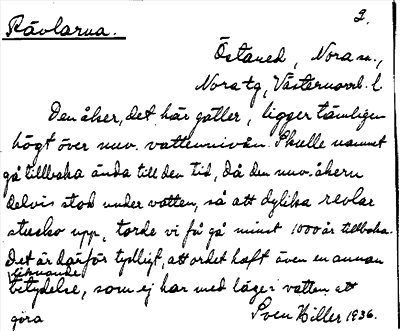 2.
Rävlarna.
Östaned, Nora sn.,
Nora tg, Västernorrl. l.
Den åker, det här gäller, ligger tämligen
högt över nuv. vattennivån. Skulle namnet
gå tillbaka ända till den tid, då den nuv. åkern
delvis stod under vatten, så att dylika revlar
stucko upp, torde vi få gå minst 1000 år tillbaka.
Det är därför tydligt, att ordet haft även en annan
liknande
betydelse, som ej har med läge i vatten att
göra
Sven Hiller 1936.